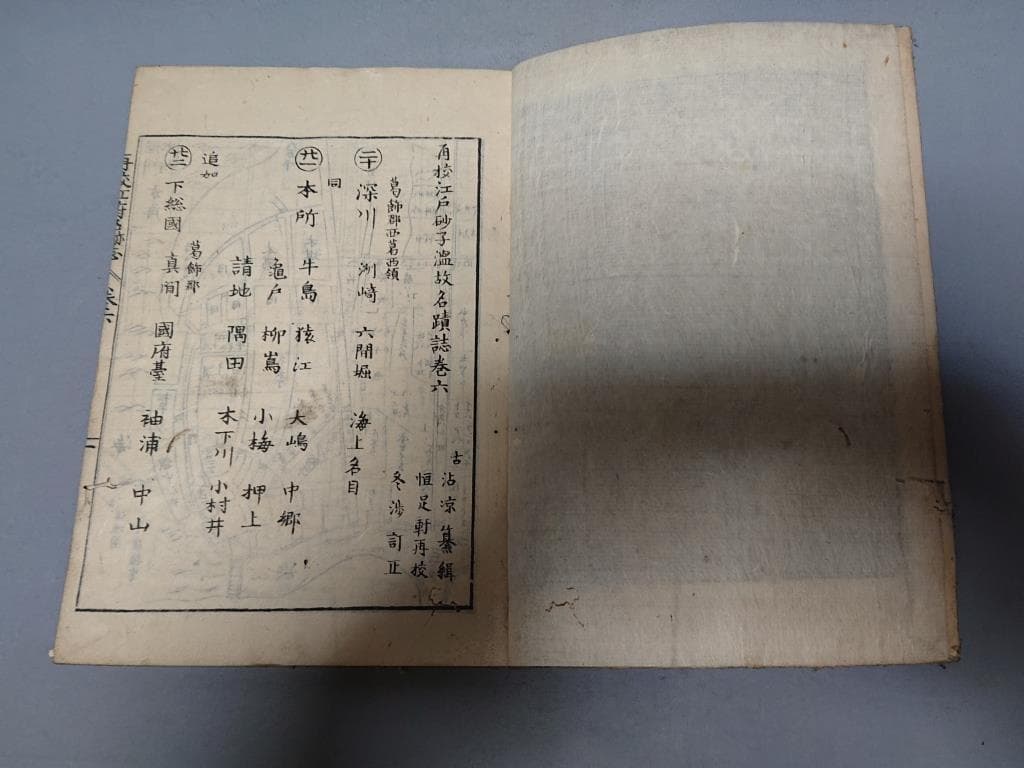 再校江戸砂子温故名蹟誌巻六
古
沾涼纂緝
恒足軒再校
冬渉訂正
葛飾郡西葛西領
二十 深川 洲崎 六間堀 海上名目
同
廿一 本所 牛島 猿江 大嶋 中郷
亀戸 柳嶌 小梅 押上
請地 隅田 木下川 小村井
追加
廿二 下総國 葛飾郡 真間 國府臺 袖浦 中山